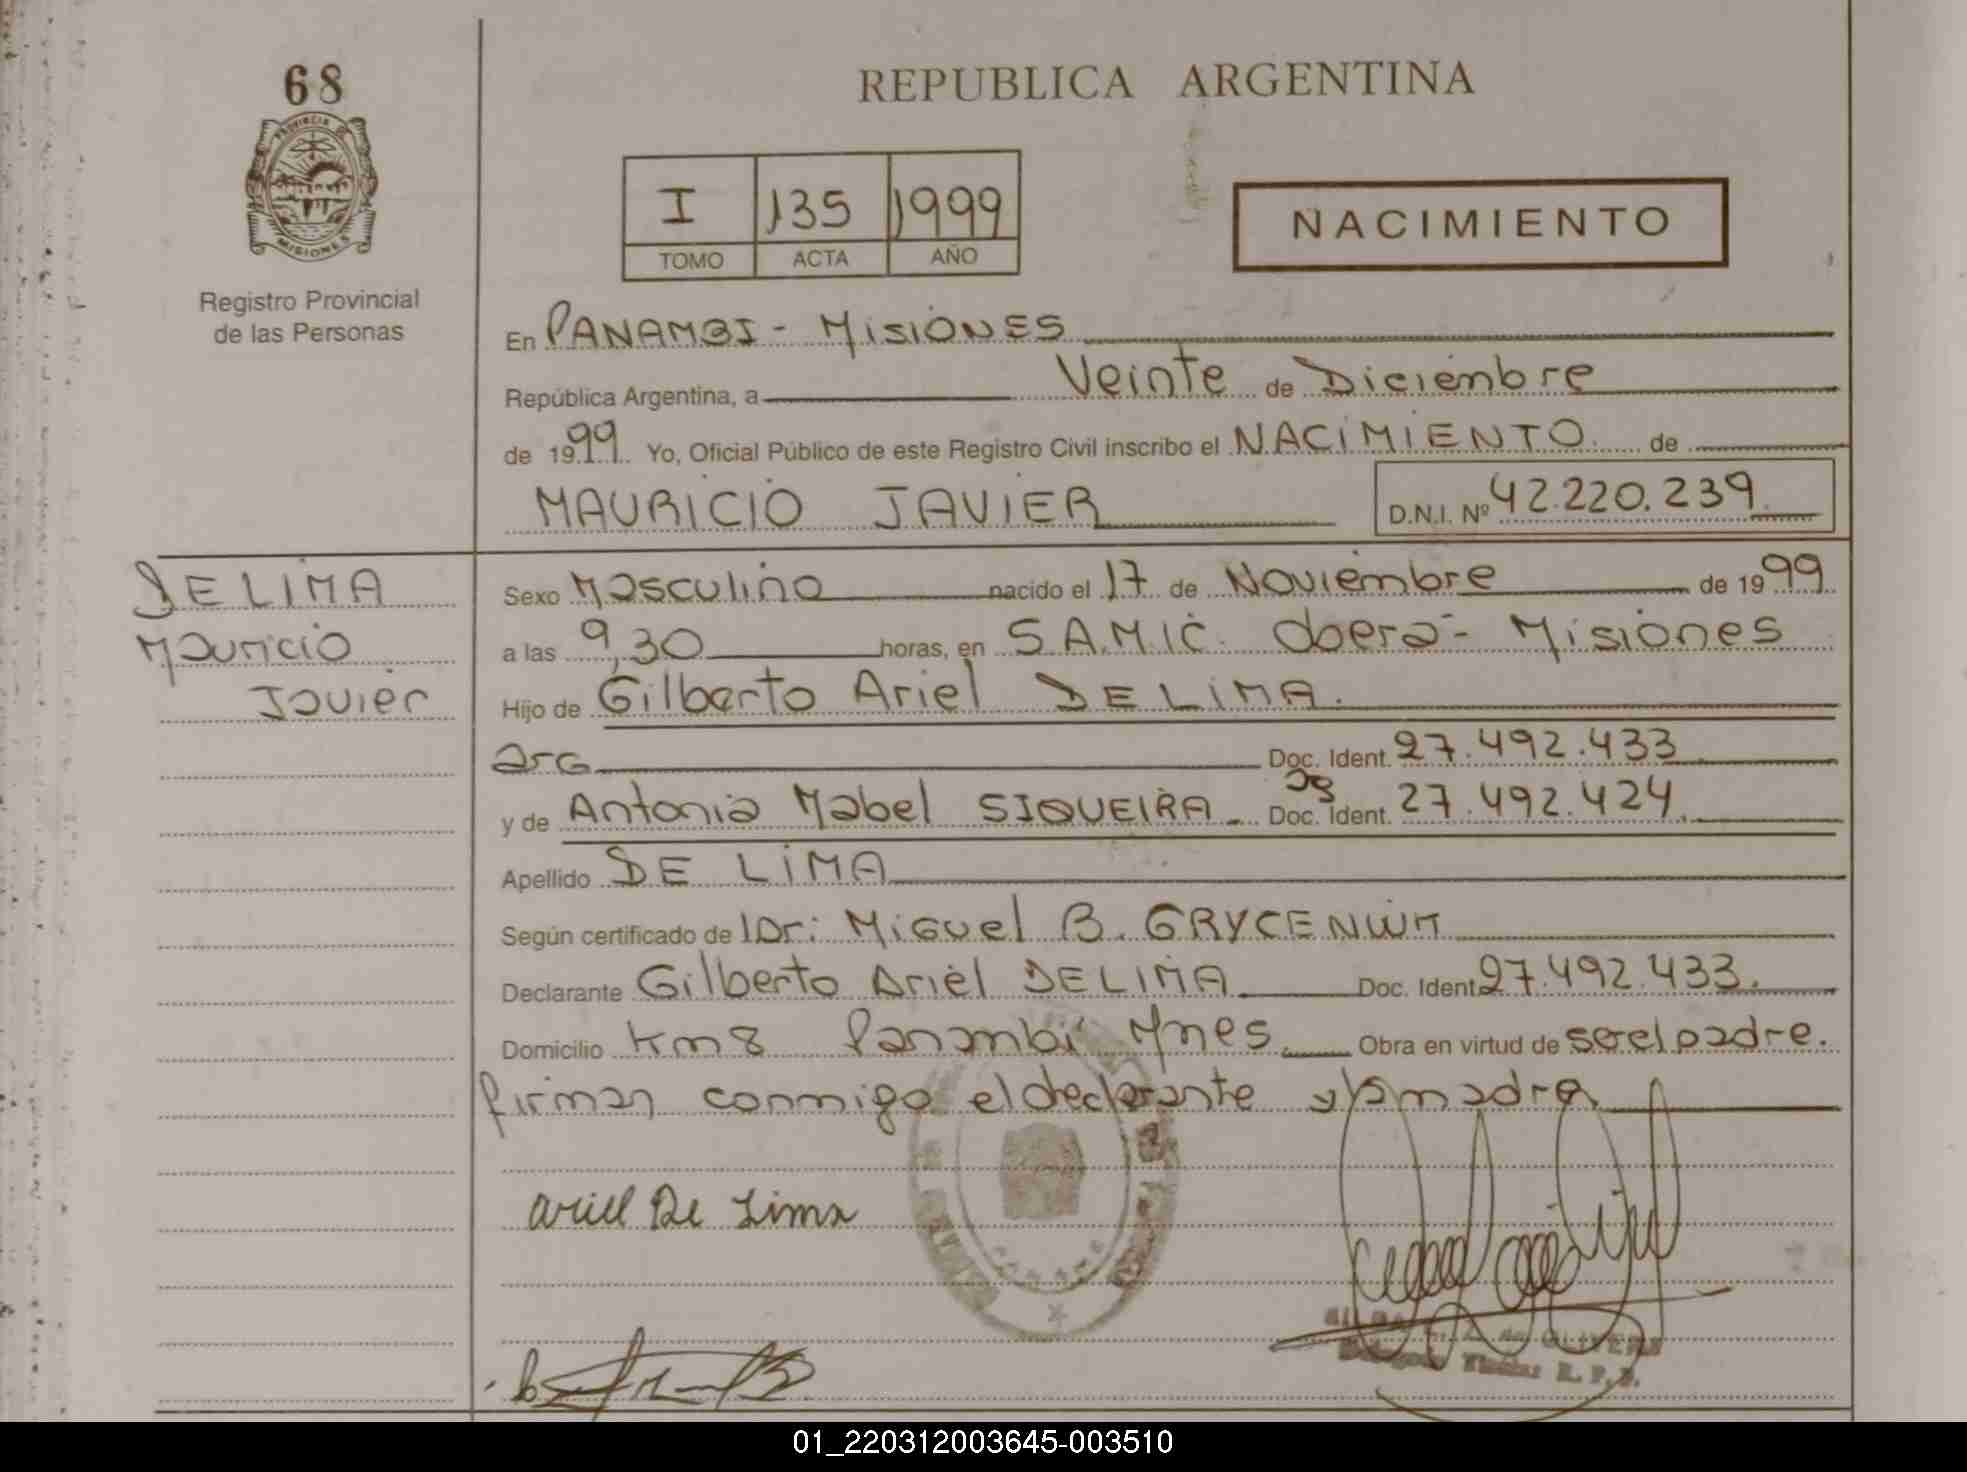 68
REPUBLICA ARGENTINA
PROVINCIA DE
MISIONES
Registro Provincial
de las Personas
I 135 1999
TOMO ACTA AÑO
NACIMIENTO
En PANAMBI - MISIONES
República Argentina, a Veinte de Diciembre
de 1999 Yo, Oficial Público de este Registro Civil inscribo el NACIMIENTO de
MAURICIO JAVIER D.N.I. Nº 42.220.239
DE LIMA
Mauricio
Javier
Sexo Masculino nacido el 17 de Noviembre de 1999
a las 9,30 horas, en S.A.M.I.C. Obera - Misiones
Hijo de Gilberto Ariel DE LIMA.
arg Doc. Ident. 27.492.433
y de Antonia Mabel SIQUEIRA Doc. Ident. 27.492.424
Apellido DE LIMA
Según certificado de Dr: Miguel B. GRYCENWM
Declarante Gilberto Ariel DE LIMA Doc. Ident. 27.492.433.
Domicilio Km 8 Panambí Mnes Obra en virtud de ser el padre.
firman conmigo el declarante y la madre
Ariel De Lima
R. P. P.
01_220312003645-003510